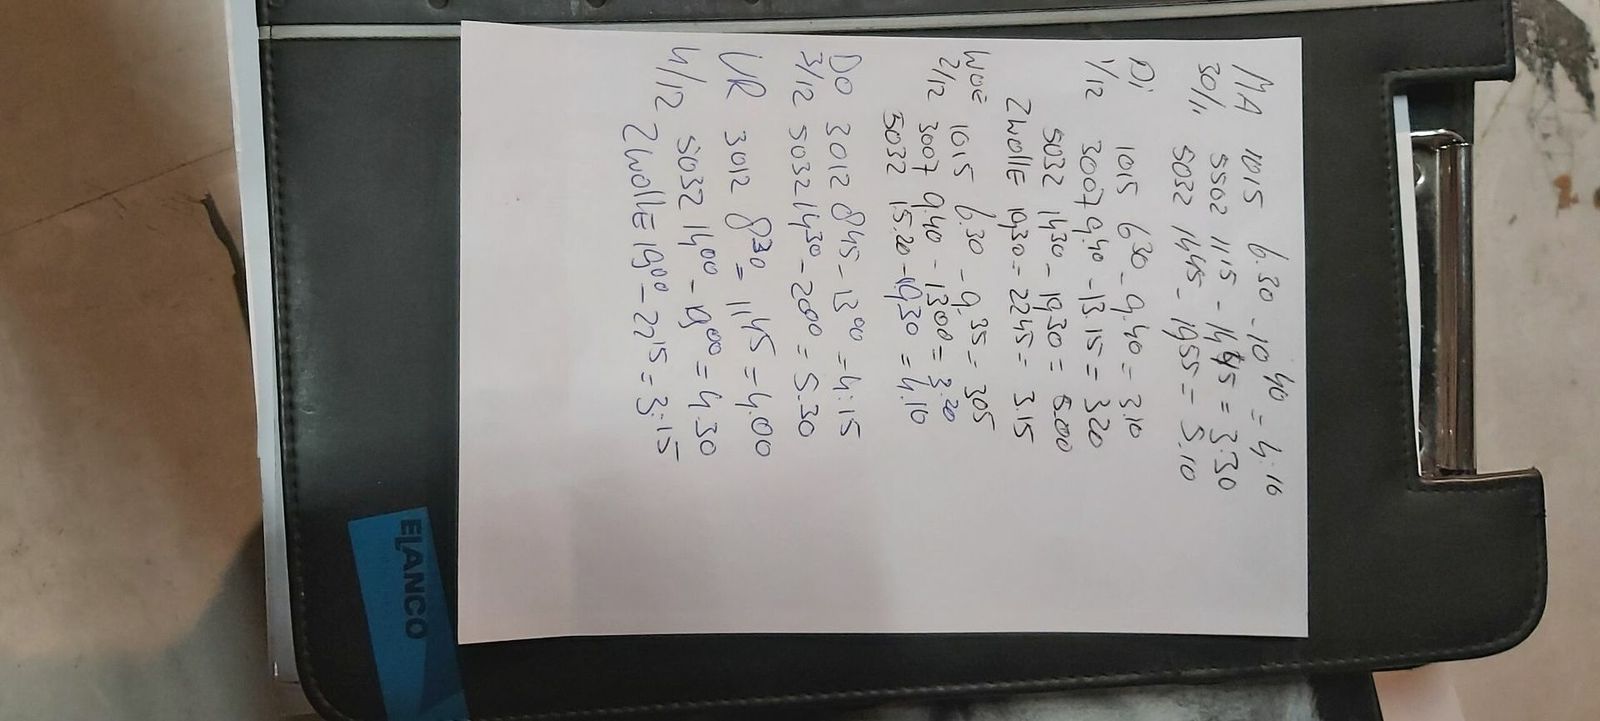 MA 1015 6.30 - 10 40 = 4:10
30/11 5502 11.15 - 14.45 = 3:30
5032 14.45 - 19.55 = 5.10
Di 1015 6 30 - 9.40 = 3.10
1/12 3007 9.40 - 13.15 = 3.20
5032 14.30 - 19.30 = 5.000
ZWOLLE 19.30 = 22 45 = 3.15
WOE 1015 6.30 - 9.35 = 305
2/12 3007 9.40 - 13.00 = 3.20
5032 15.20 - 19.30 = 4.10
DO 3012 8 45 - 13 00 = 4:15
3/12 5032 14 30 - 20 00 = 5.30
VR 3012 8 30 = 11.45 = 4.00
4/12 5032 14 00 - 19 00 = 4.30
ZWOLLE 19 00 - 22 15 = 3:15
ELANCO